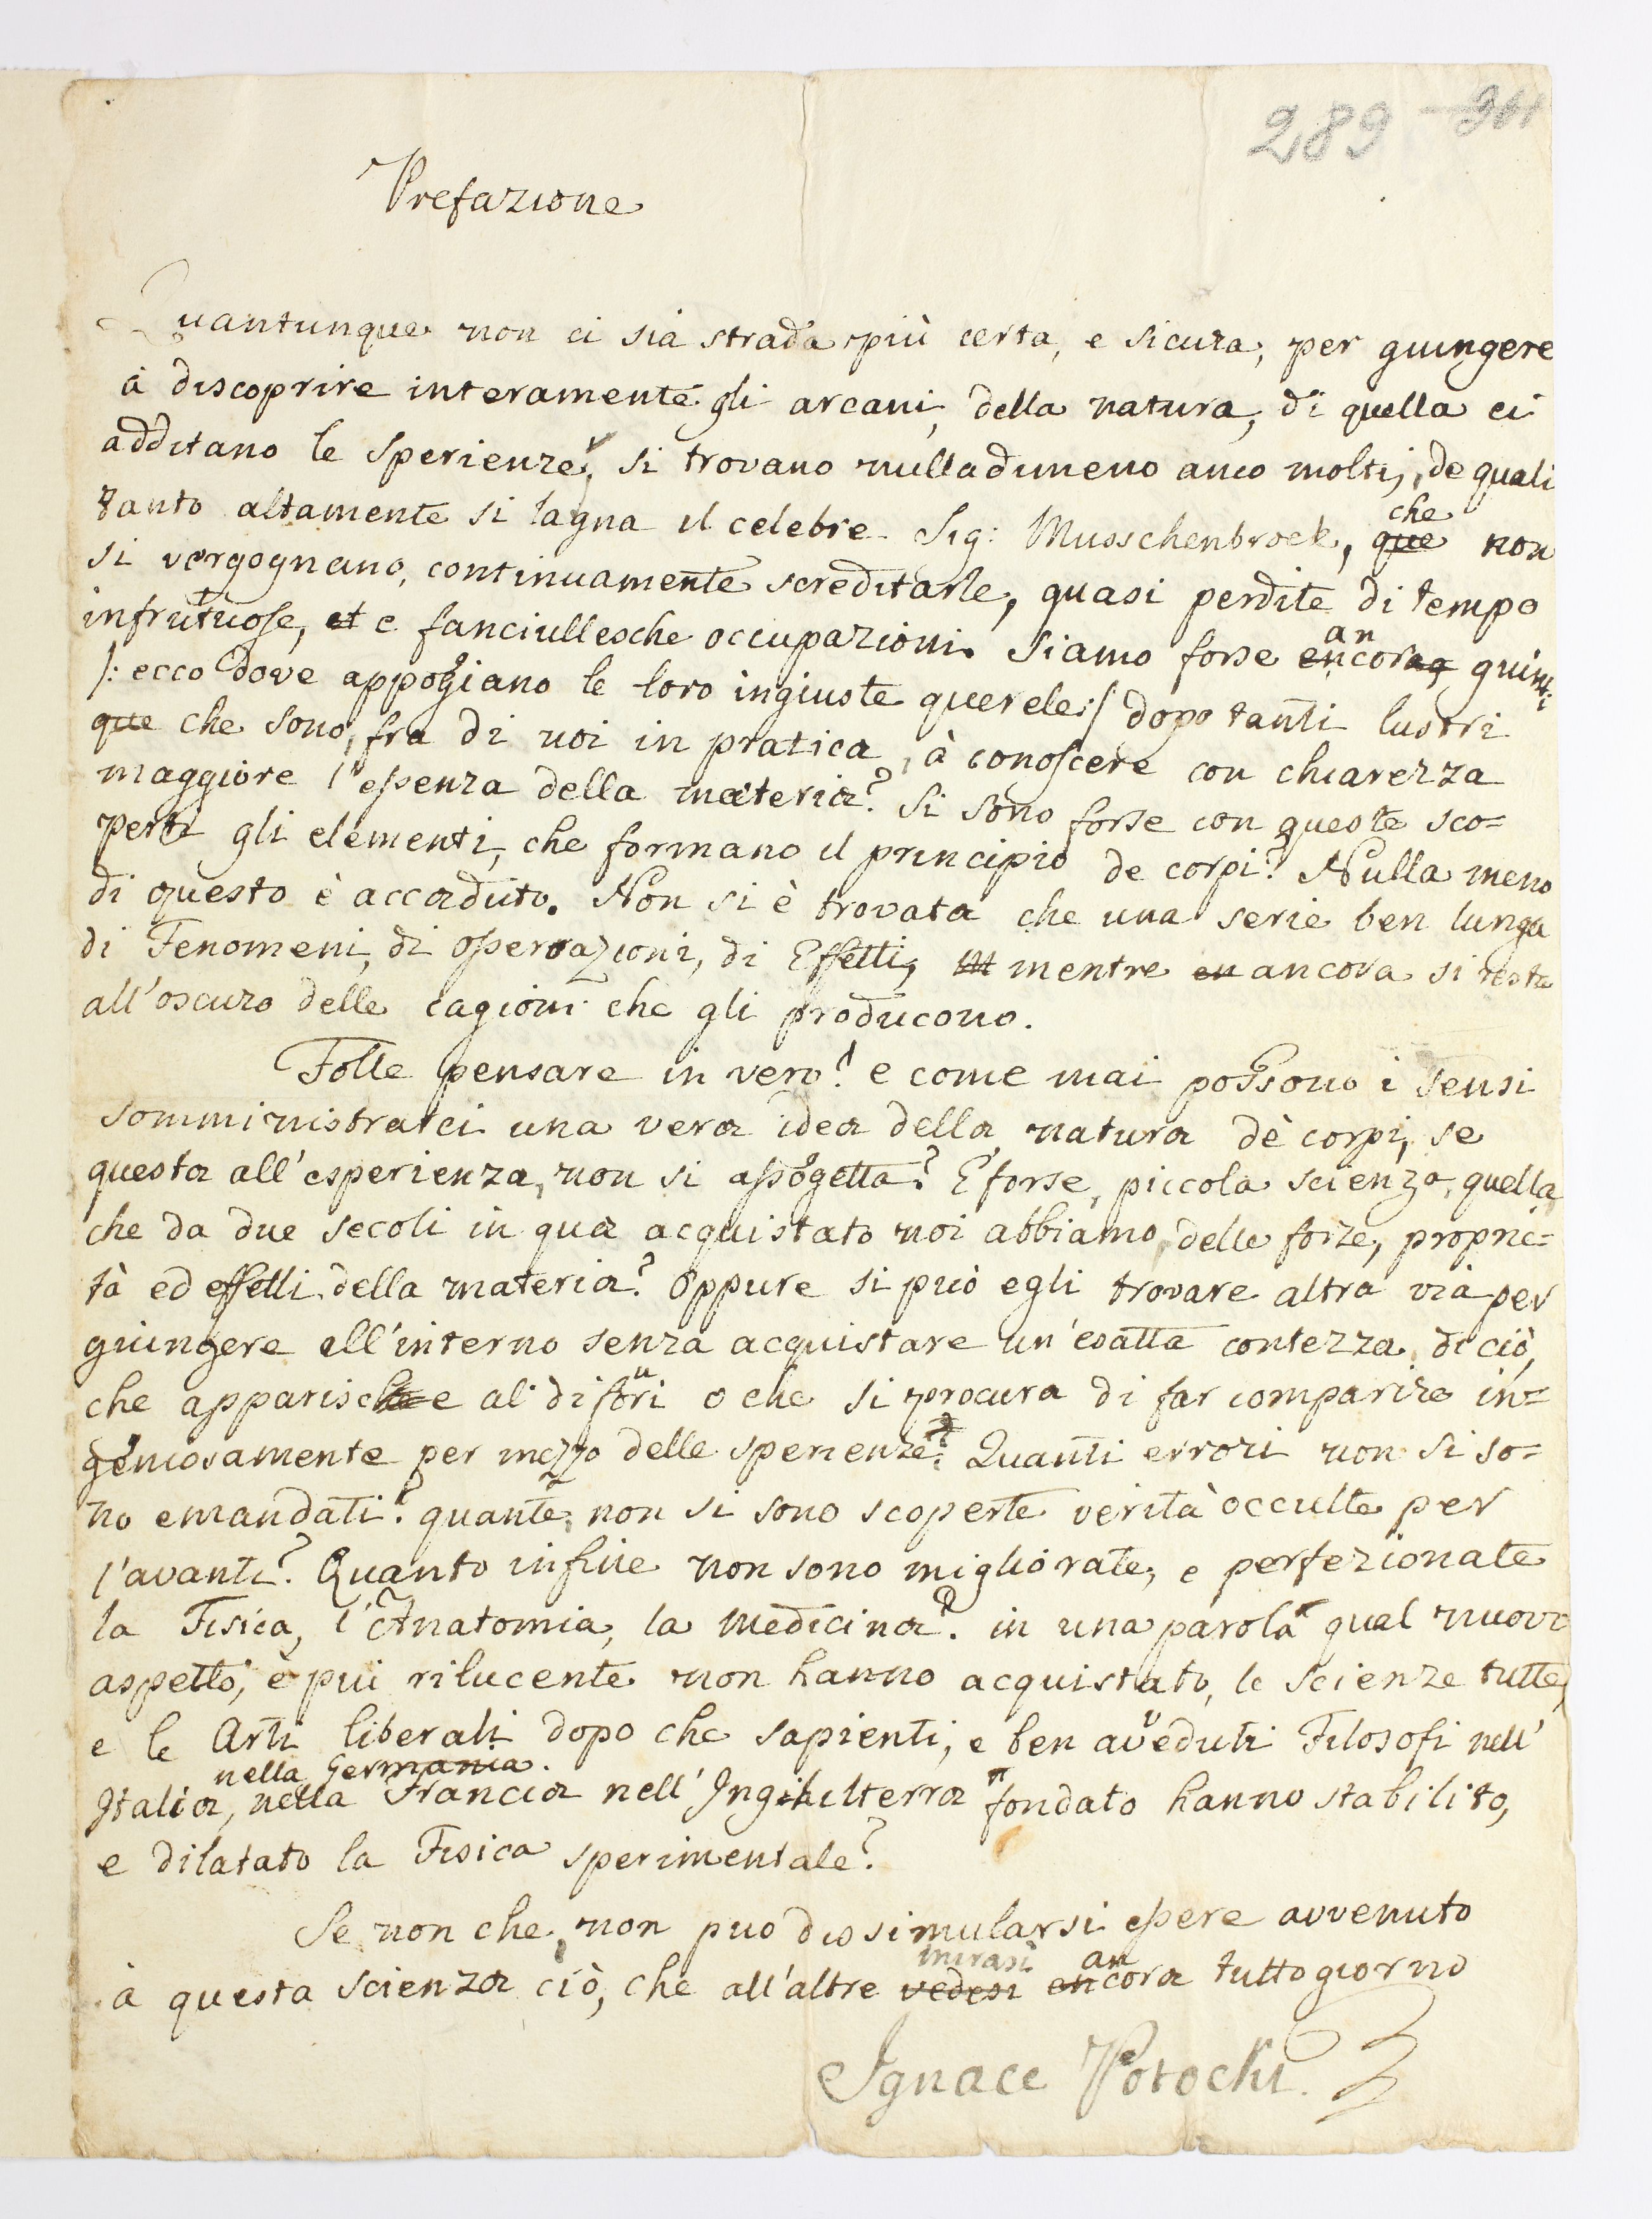 289 301
Prefazione
Quantunque non ci sia strada più certa, e sicura, per guingere
à discoprire interamente gli arcani, della natura, di quella ci
additano le sperienze, si trovano nulladimeno anco molti, de quali
che
tanto altamente si lagna il celebre Sig: Musschenbroek, que non
si vergognano, continuamente screditarle, quasi perdite di tempo
infruttuose, et e fanciullesche occupazioni. Siamo forse
an
encora guin-
/: ecco dove appogiano le loro ingiuste querele:/ dopo tanti lustri
que che sono, fra di noi in pratica, à conoscere con chiarezza
maggiore l'essenza della materia? Si sono forse con queste sco=
perti gli elementi, che formano il principio de corpi? Nulla meno
di questo è accaduto. Non si è trovata che una serie ben lunga
di Fenomeni, di operazioni, di Effetti, m mentre en ancora si resta
all'oscuro delle cagioni che gli producono.
Folle pensare in vero! e come mai possono i sensi
somministrarci una vera idea della natura dè corpi, se
questa all'esperienza, non si assogetta? E' forse, piccola scienza, quella
che da due secoli in quà acquistato noi abbiamo, delle forze, proprie=
tà ed effetti della materia? Oppure si può egli trovare altra via per
giungere all'interno senza acquistare un'esatta contezza di ciò,
che apparische e al di fuori o che si procura di far comparire in=
geniosamente per mezzo delle sperienze? Quanti errori non si so=
no emandati? quante non si sono scoperte verità occulte per
l'avanti? Quanto infine non sono migliorate, e perfezionate
la Fisica, l'Anatomia, la Medicina? in una parola qual nuovo
aspetto, e più rilucente non hanno acquistato, le scienze tutte,
e le Arti liberali dopo che sapienti, e ben avveduti Filosofi nell'
nella Germania.
Italia, nella Francia nell'Inghilterra fondato hanno stabilito,
e dilatato la Fisica sperimentale?
Se non che, non può dissimularsi essere avvenuto
mirasi an
à questa scienza ciò, che all'altre vedesi encora tutto giorno
Ignace Potocki.